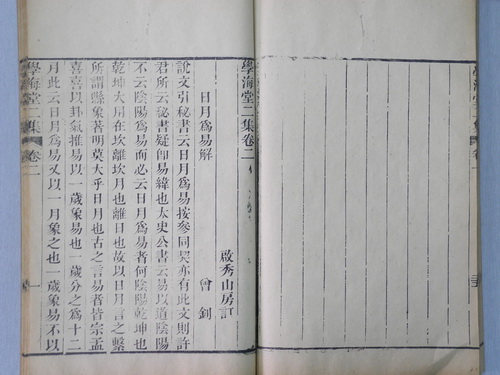 學海堂二集卷二
啟秀山房訂
日月爲易解
曾釗
說文引秘書云日月爲易按參同契亦有此文則許
君所云秘書疑卽易緯也太史公書云易以道陰陽
不云陰陽爲易而必云日月爲易者何陰陽乾坤也
乾坤大而在坎離坎月也離日也故以日月言之繫
所謂縣象著明莫大乎日月也古之言易者皆宗孟
喜喜以卦氣推易以一歲象易也一歲分之爲十二
月此云日月爲易又以一月象之也一歲象易不以
學海堂二集
卷二
一